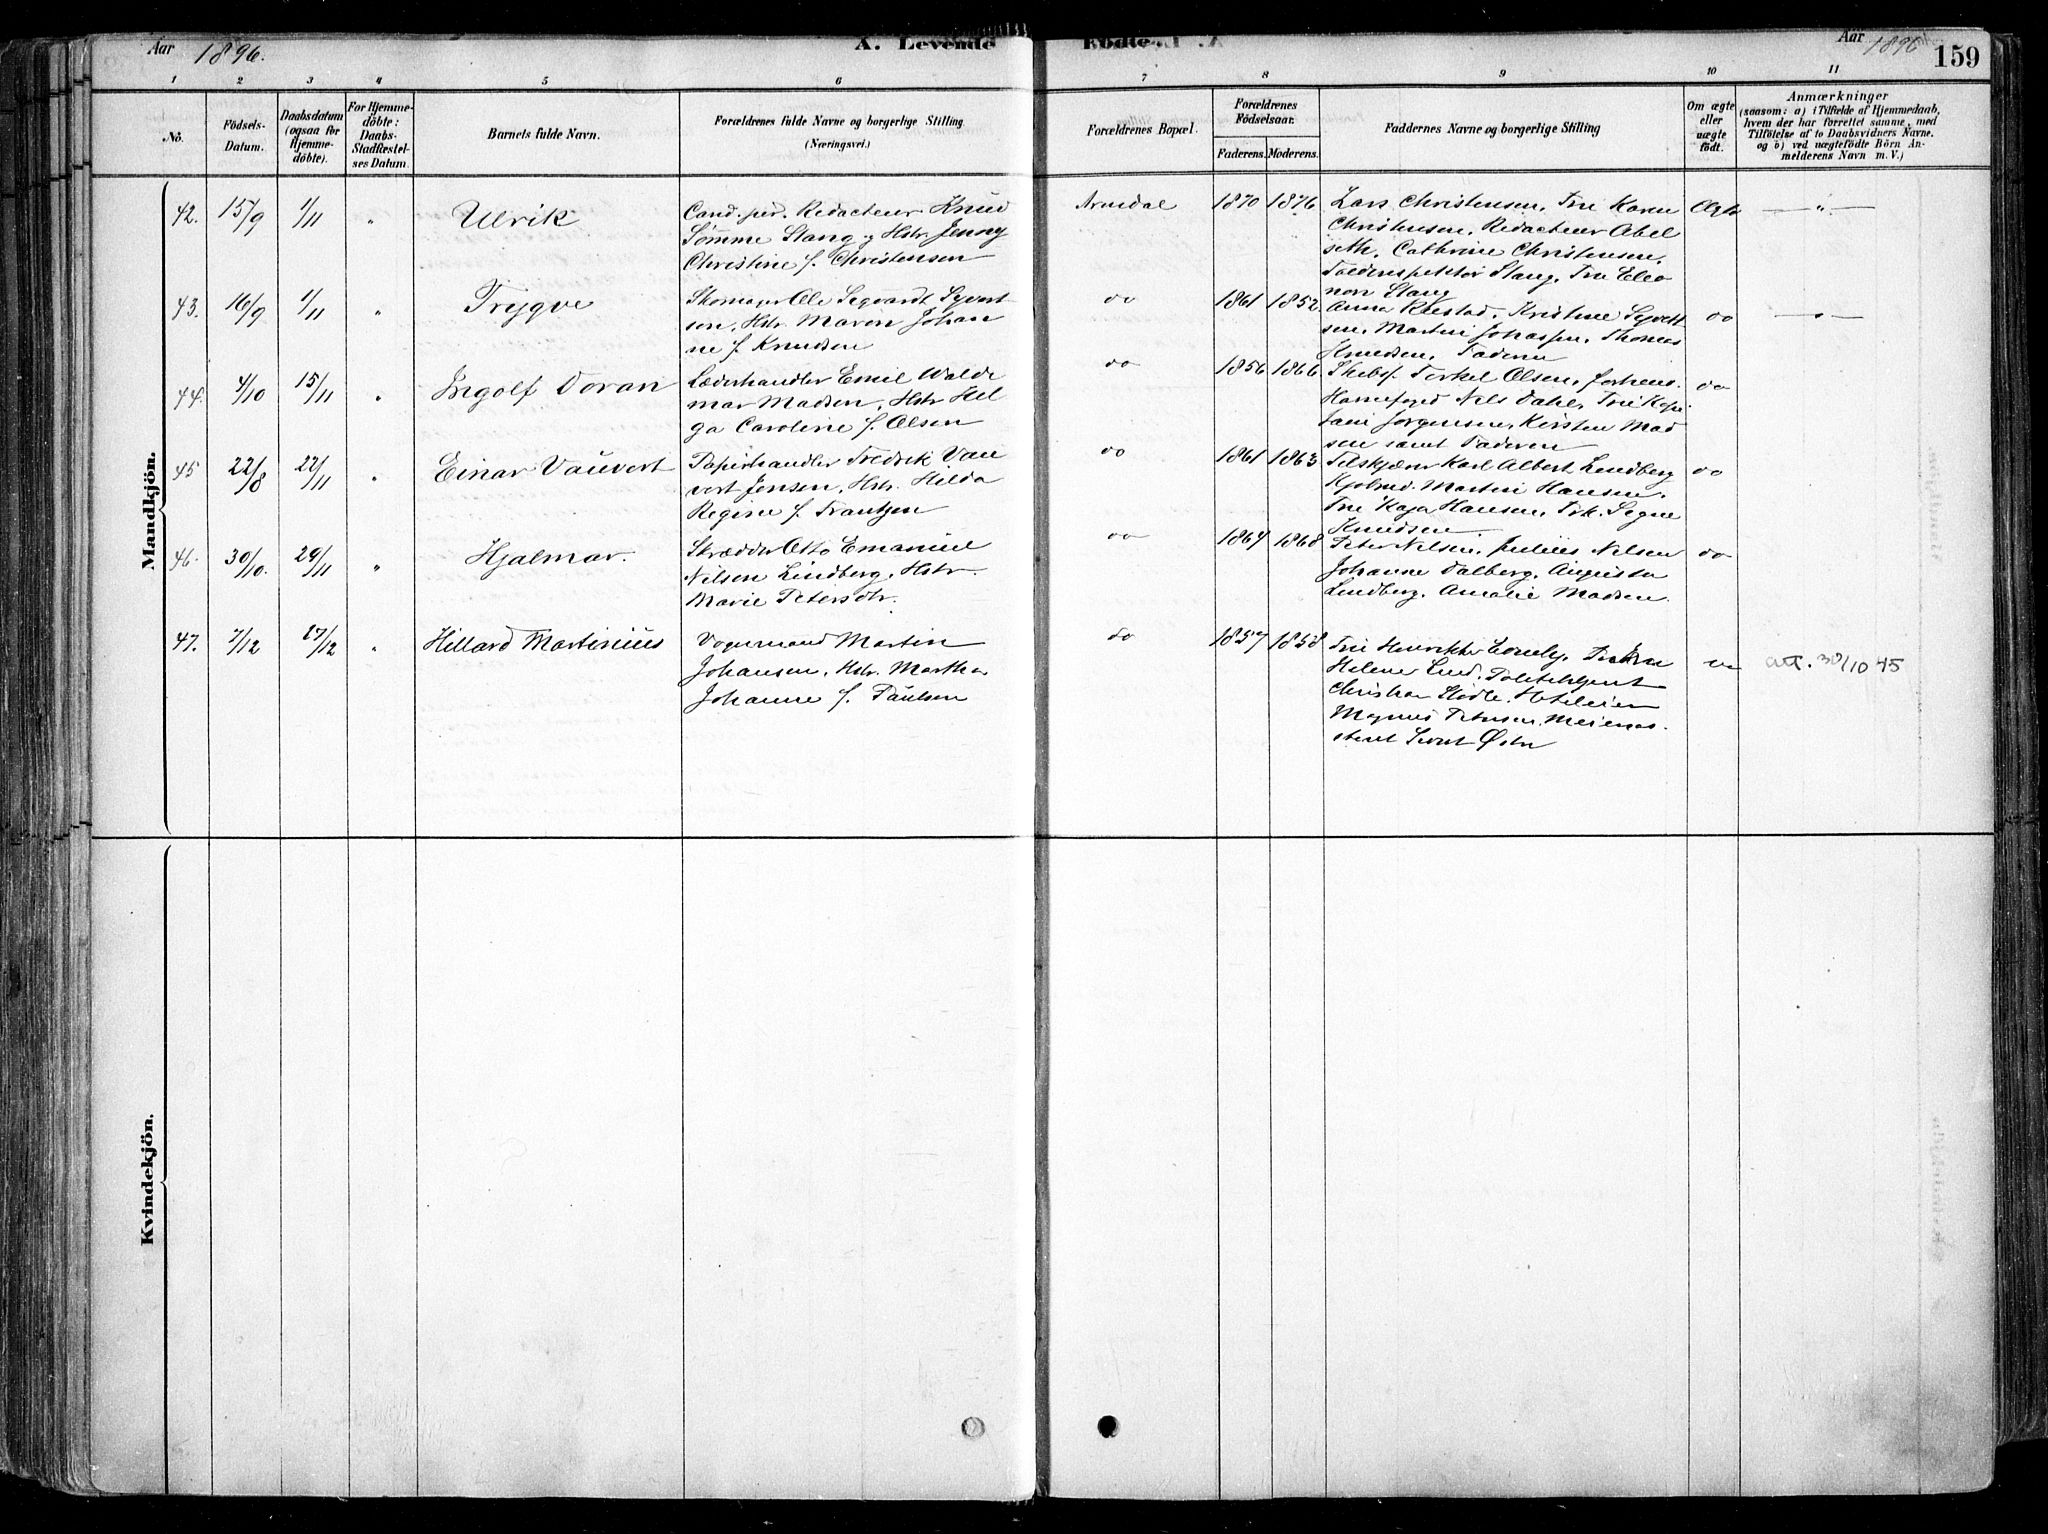 Aar 1896.
A. Levende
Födte.
Aar 1896
159
1 2 3 4 5 6 7 8 9 10 11
No.
Födsels-
Datum.
Daabsdatum
(ogsaa for
Hjemme-
döbte).
For Hjemme-
döbte:
Daabs-
Stadfæstel-
ses Datum.
Barnets fulde Navn.
Forældrenes fulde Navne og borgerlige Stilling
(Næringsvei.)
Forældrenes Bopæl.
Forældrenes
Födselsaar.
Faderens. Moderens.
Faddernes Navne og borgerlige Stilling
Om ægte
eller
uægte
födt.
Anmærkninger
(saasom: a) i Tilfælde af Hjemmedaab,
hvem der har forrettet samme, med
Tilföielse af to Daabsvidners Navne.
og b) ved uægtefödte Börn An-
melderens Navn m. V.)
Mandkjön.
42. 15/9 1/11 " Ulrik
Cand. jur. Redacteur Knud
Sømme Stang og Hstr. Jenny
Christine f. Christensen
Arendal 1870 1876
Lars Christensen, Frue Karen
Christensen, Redacteur Abel
seth, Cathrine Christensen,
Toldinspektør Stang, Frue Eleo
nore Stang
Ægte —"—
43. 16/9 1/11 " Trygve
Skomager Ole Segvardt Syvert
sen, Hstr. Maren Johan
ne f. Knudsen
do 1861 1852
Anna, Kristine Syvert
sen, Martin, Thomas
Knudsen, Faderen
do —"—
44. 4/10 15/11 " Ingolf Doran
Læderhandler Emil Walde
mar Madsen, Hstr. Hel
ga Caroline f. Olsen
do 1856 1866
Skibsf. Terkel Olsen,
Havnefoged Nils Dahl, Frue
Jørgensen, Kirsten Mad
sen samt Faderen
do
45 22/8 22/11 " Einar Vauvert
Papirhandler Fredrik Vau
vert Jensen, Hstr. Hilda
Regine f. Frantzen
do 1861 1863
Karl Albert Lindberg
Kjøbmd. Martin Hansen,
Frue Kaja Hansen, Frk. Signe
Knudsen
do
46. 30/10. 29/11 " Hjalmar.
Skrædder Otto Emanuel
Nilsen Lindberg, Hstr.
Marie Petersdtr.
do 1864 1868
Peter Nilsen, Julius Nilsen
Johanne Dalberg, Augusta
Lindberg, Amalie Madsen.
do
47. 7/12 27/12 " Hillard Martinius
Vognmand Martin
Johansen, Hstr. Martha
Johanne f. Paulsen
do 1857 1858
Frue Henrikke
Helene Lund, Politibetjent
Christian
Magnus Petersen,
do att. 30/10 45
Kvindekjön.